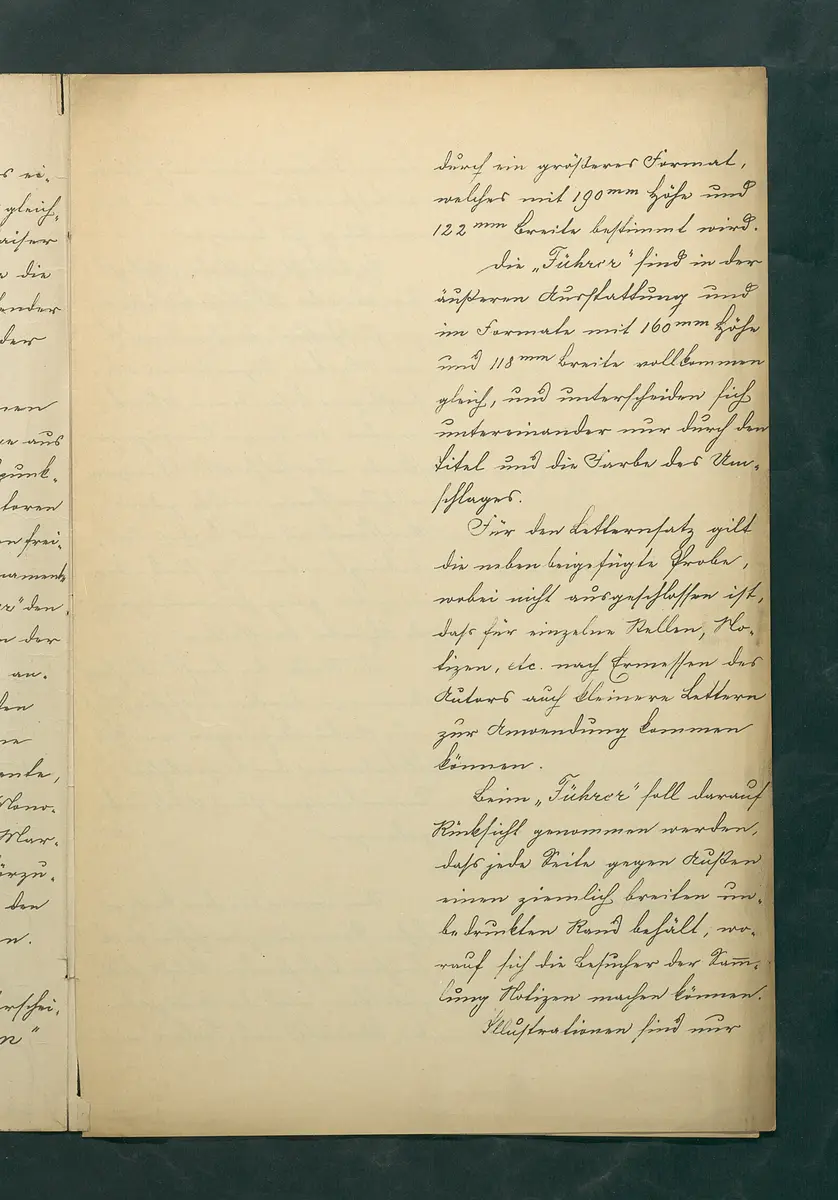 s ei-
gleich-
aiser
die
ender
der
nen
re aus
punk-
toren
en frei-
namente
er" den
n der
an-
den
ne
ente,
Mono-
Mar-
örzu-
den
n.
erschei-
n"
durch ein größeres Format,
welches mit 190 mm Höhe und
122 mm Breite bestimmt wird.
Die „Führer" sind in der
äußeren Ausstattung und
im Formate mit 160 mm Höhe
und 118 mm Breite vollkommen
gleich, und unterscheiden sich
untereinander nur durch den
Titel und die Farbe des Um-
schlages.
Für den Letternsatz gilt
die neben beigefügte Probe,
wobei nicht ausgeschlossen ist,
dass für einzelne Stellen, No-
tizen, etc. nach Ermessen des
Autors auch kleinere Lettern
zur Anwendung kommen
können.
Beim „Führer" soll darauf
Rücksicht genommen werden,
dass jede Seite gegen Außen
einen ziemlich breiten un-
bedruckten Rand behält, wo-
rauf sich die Besucher der Sam̅-
lung Notizen machen können.
Illustrationen sind nur